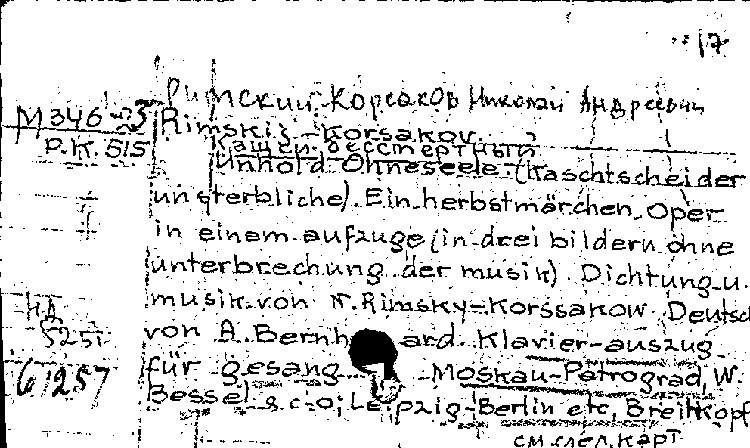 17
Римский Корсаков Николай Андреевич
М346
Rimskij-Korsakov.
Р.К. 515
Кащей бессмертный
Unhold Ohneseele (Kaschtschei der
unsterbliche). Ein herbstmärchen. Oper
in einem aufzuge (in drei bildern ohne
unterbrechung der musik). Dichtung u.
musik von N. Rimsky-Korssakow. Deutsch
НД
5251
von A. Bernhard. Klavier-auszug
für gesang. Moskau-Patrograd, W.
61257
Bessel & c-o; Leipzig-Berlin etc, Breitkopf
см. след. карт